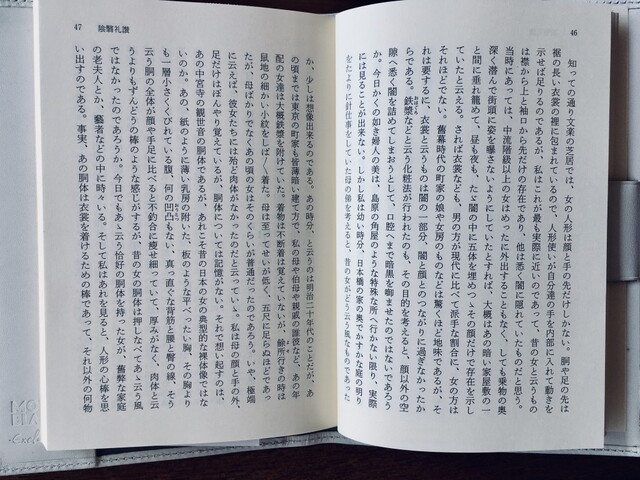 46
知っての通り文楽の芝居では、女の人形は顔と手の先だけしかない。胴や足の先は
裾の長い衣裳の裡に包まれているので、人形使いが自分達の手を内部に入れて動きを
示せば足りるのであるが、私はこれが最も実際に近いのであって、昔の女と云うもの
は襟から上と袖口から先だけの存在であり、他は悉く闇に隠れていたものだと思う。
当時にあっては、中流階級以上の女はめったに外出することもなく、しても乗物の奥
深く潜んで街頭に姿を曝さないようにしていたとすれば、大概はあの暗い家屋敷の一
と間に垂れ籠めて、昼も夜も、たゞ闇の中に五体を埋めつゝその顔だけで存在を示し
ていたと云える。されば衣裳なども、男の方が現代に比べて派手な割合に、女の方は
それほどでない。旧幕時代の町家の娘や女房のものなどは驚くほど地味であるが、そ
れは要するに、衣裳と云うものは闇の一部分、闇と顔とのつながりに過ぎなかったか
らである。鉄漿などと云う化粧法が行われたのも、その目的を考えると、顔以外の空
隙へ悉く闇を詰めてしまおうとして、口腔へまで暗黒を啣ませたのではないであろう
か。今日かくの如き婦人の美は、島原の角屋のような特殊な所へ行かない限り、実際
には見ることが出来ない。しかし私は幼い時分、日本橋の家の奥でかすかな庭の明り
をたよりに針仕事をしていた母の俤を考えると、昔の女がどう云う風なものであった
47 陰翳礼讃
か、少しは想像出来るのである。あの時分、と云うのは明治二十年代のことだが、あ
の頃までは東京の町家も皆薄暗い建て方で、私の母や伯母や親戚の誰彼など、あの年
配の女達は大概鉄漿を附けていた。着物は不断着は覚えていないが、餘所行きの時は
鼠地の細かい小紋をしば〳〵着た。母は至ってせいが低く、五尺に足らぬほどであっ
たが、母ばかりでなくあの頃の女はそのくらいが普通だったのであろう。いや、極端
に云えば、彼女たちには殆ど肉体がなかったのだと云っていゝ。私は母の顔と手の外、
足だけはぼんやり覚えているが、胴体については記憶がない。それで想い起すのは、
あの中宮寺の観世音の胴体であるが、あれこそ昔の日本の女の典型的な裸体像ではな
いのか。あの、紙のように薄い乳房の附いた、板のような平べったい胸、その胸より
も一層小さくくびれている腹、何の凹凸もない、真っ直ぐな背筋と腰と臀の線、そう
云う胴の全体が顔や手足に比べると不釣合に痩せ細っていて、厚みがなく、肉体と云
うよりもずんどうの棒のような感じがするが、昔の女の胴体は押しなべてあゝ云う風
ではなかったのであろうか。今日でもあゝ云う恰好の胴体を持った女が、舊弊な家庭
の老夫人とか、藝者などの中に時々いる。そして私はあれを見ると、人形の心棒を思
い出すのである。事実、あの胴体は衣裳を着けるための棒であって、それ以外の何物